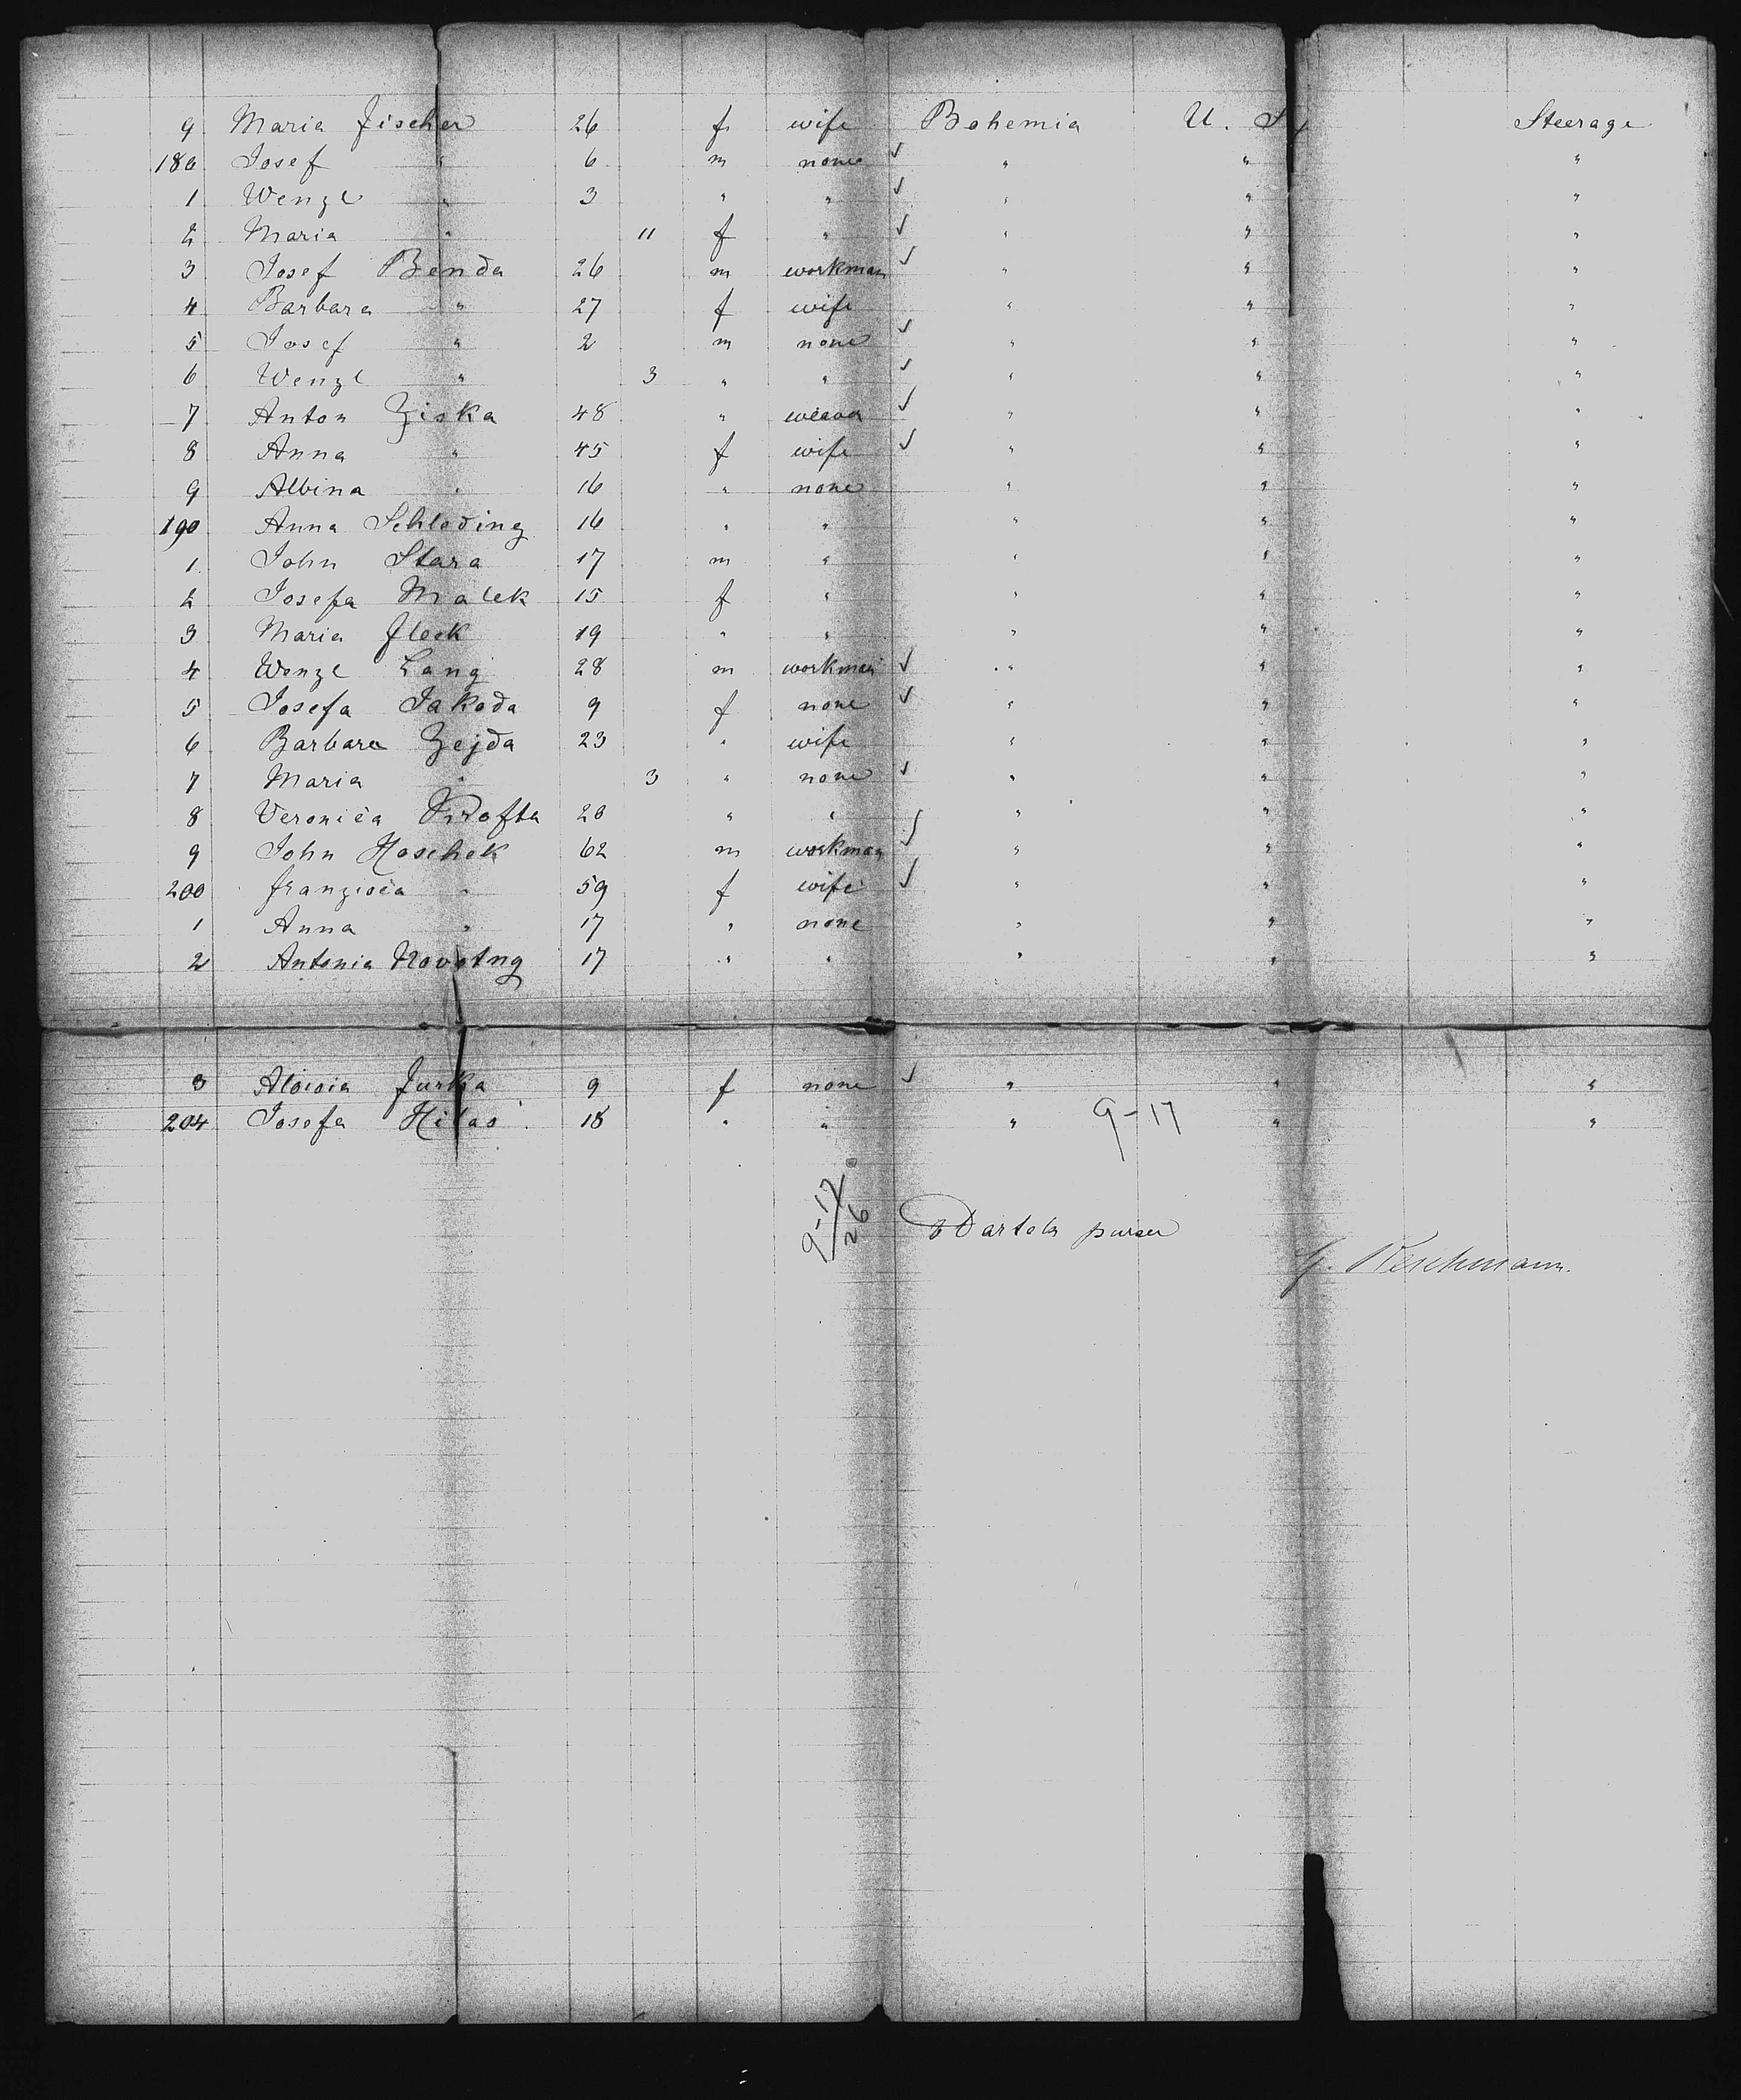 9 Maria Fischer 26 f wife Bohemia U. S. Steerage
180 Josef " 6 m none " " "
1 Wenzl " 3 " " " " "
2 Maria " 11 f " " " "
3 Josef Benda 26 m workman " " "
4 Barbara " 27 f wife " " "
5 Josef " 2 m none " " "
6 Wenzl " 3 " " " " "
7 Anton Ziska 48 " weaver " " "
8 Anna " 45 f wife " " "
9 Albina " 16 " none " " "
190 Anna Schleding 16 " " " " "
1 John Stara 17 m " " " "
2 Josefa Malek 15 f " " " "
3 Maria Fleck 19 " " " " "
4 Wenzl Lang 28 m workman " " "
5 Josefa Jakoda 9 f none " " "
6 Barbara Zejda 23 " wife " " "
7 Maria " 3 " none " " "
8 Veronica Krofta 20 " " " " "
9 John Hoschek 62 m workman " " "
200 Franzisca " 59 f wife " " "
1 Anna " 17 " none " " "
2 Antonia Novotny 17 " " " " "
3 Aloisia Jurka 9 f none " " "
204 Josefa Hilas 18 " " " " "
9-17
9-17/26
purser